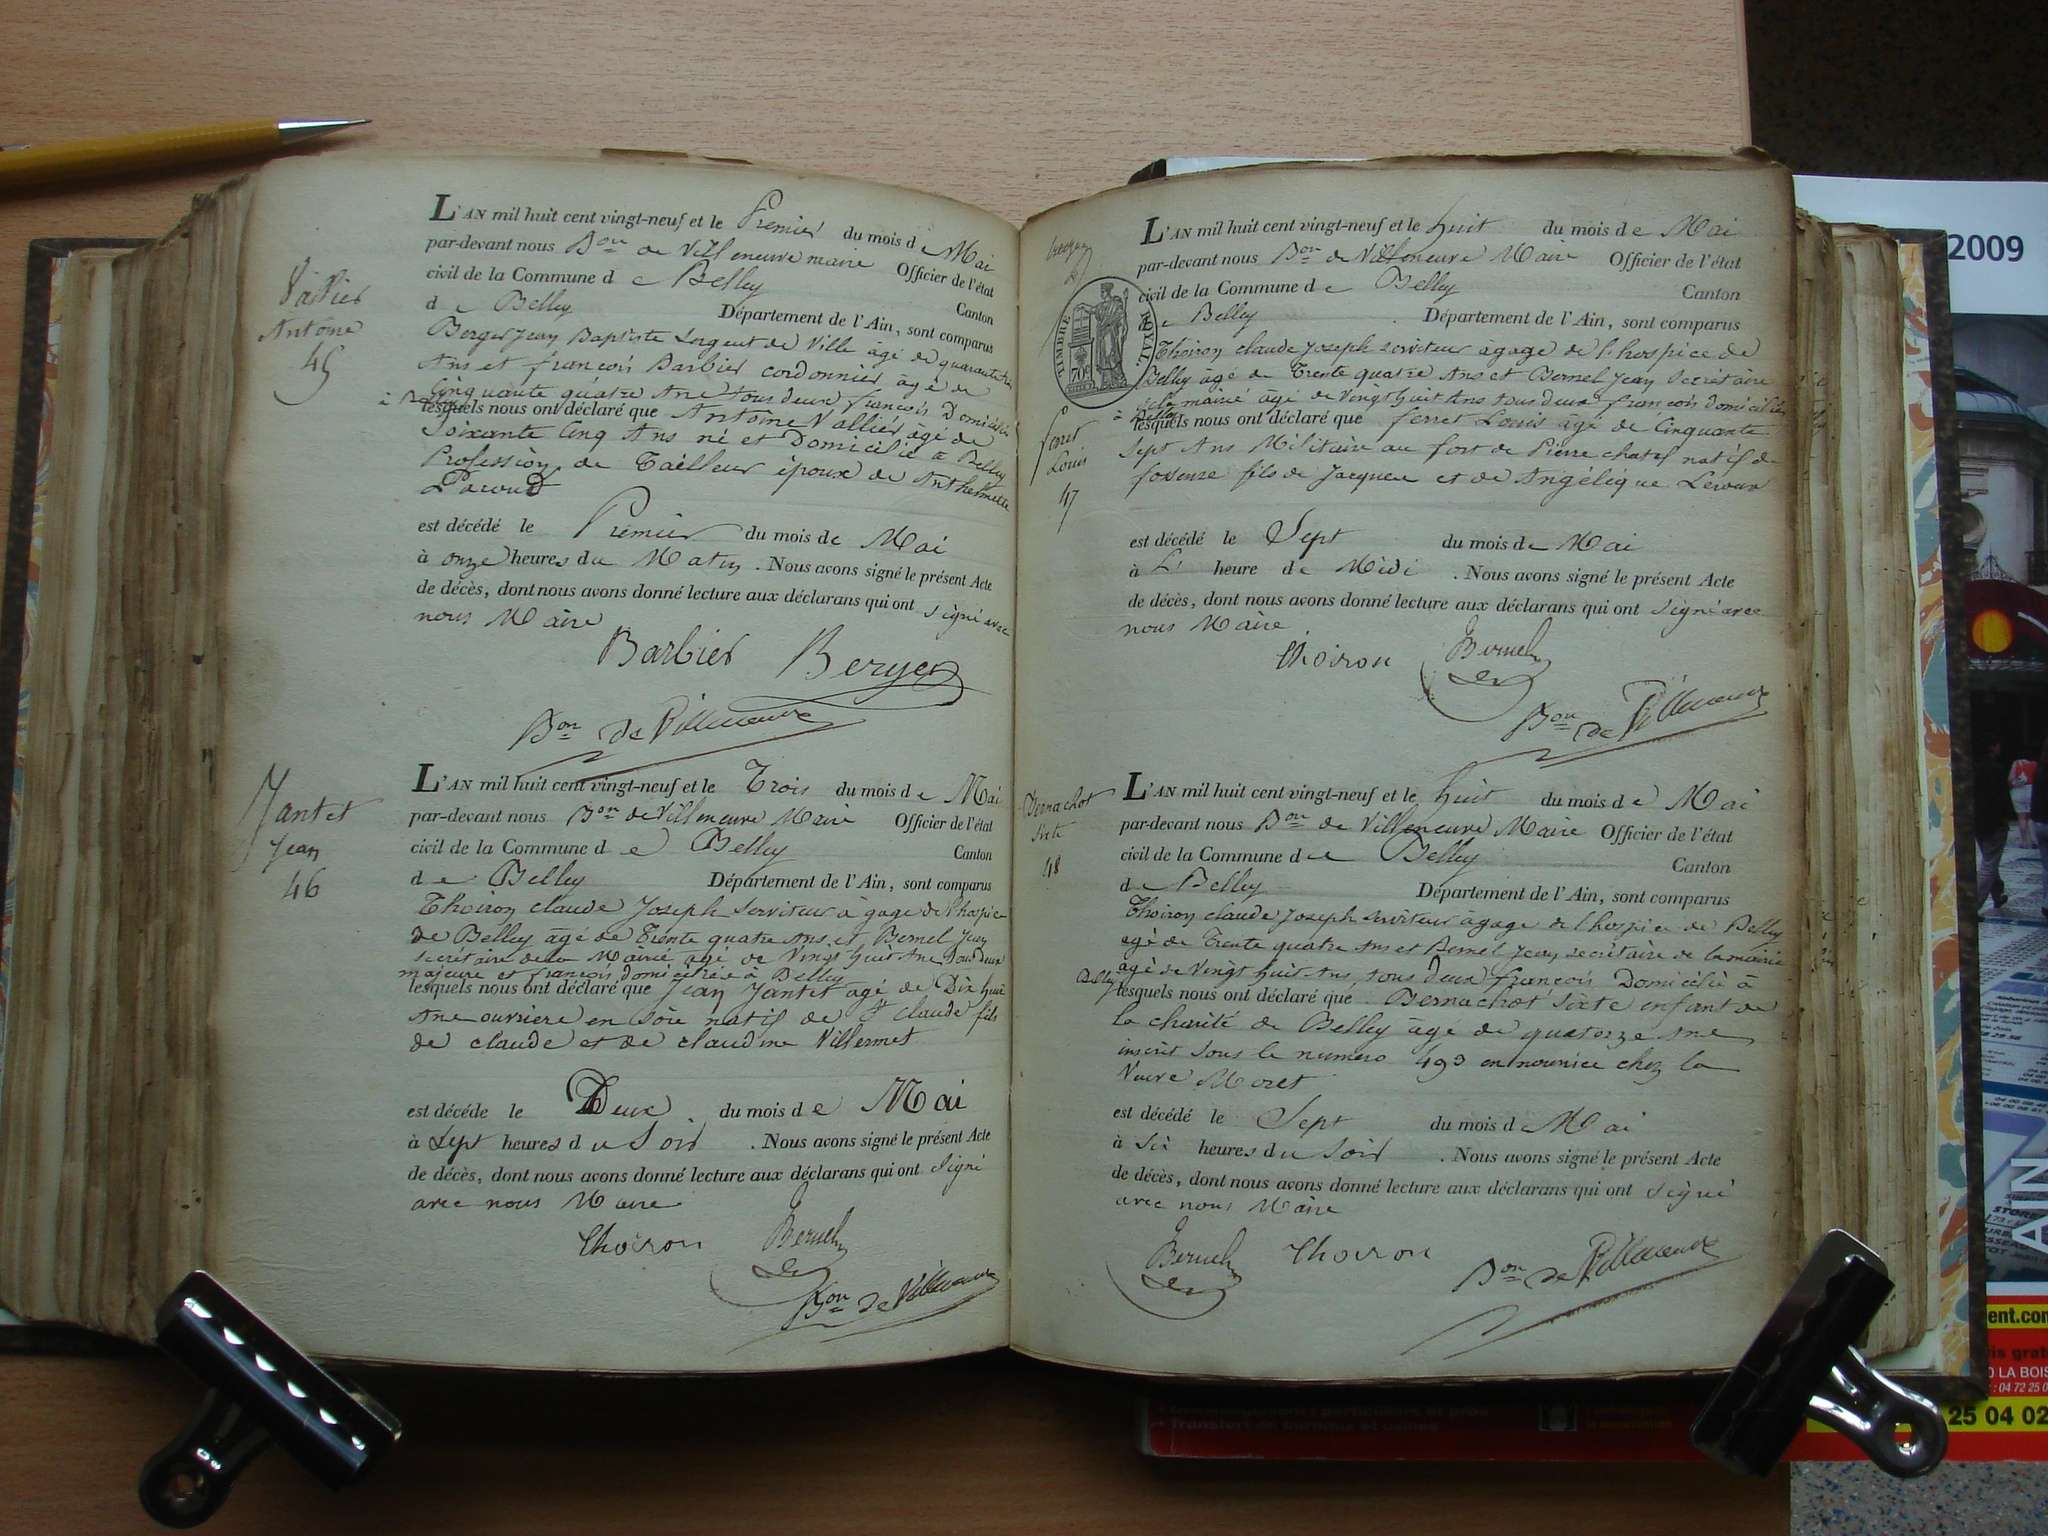 Vallier
Antoine
45
L'AN mil huit cent vingt-neuf et le Premier du mois de Mai
par-devant nous Bon de Villeneuve maire Officier de l'état
civil de la Commune de Belley Canton
de Belley Département de l'Ain, sont comparus
Berger Jean Baptiste Sergent de Ville âgé de quarante
Ans et françois Barbier cordonnier âgé de
Cinquante quatre Ans tous deux françois Domiciliés
à Belley lesquels nous ont déclaré que Antoine Vallier âgé de
Soixante Cinq Ans né et Domicilié à Belley
Profession de Tailleur époux de Anthelmette
est décédé le Premier du mois de Mai
à onze heures du Matin. Nous avons signé le présent Acte
de décès, dont nous avons donné lecture aux déclarans qui ont signé avec
nous Maire
Barbier Berger
Bon de Villeneuve
Jantet
Jean
46
L'AN mil huit cent vingt-neuf et le Trois du mois de Mai
par-devant nous Bon de Villeneuve Maire Officier de l'état
civil de la Commune de Belley Canton
de Belley Département de l'Ain, sont comparus
Thoiron claude Joseph Serviteur à gage de l'hospice
de Belley âgé de Trente quatre Ans et Bernel Jean
Secrétaire de la Mairie agé de Vingt huit Ans Tous Deux
majeurs et françois domiciliés à Belley
lesquels nous ont déclaré que Jean Jantet agé de Dix huit
Ans ouvriere en Soie natif de St claude fils
de claude et de claudine Villermet
est décédé le Deux du mois de Mai
à Sept heures du Soir. Nous avons signé le présent Acte
de décès, dont nous avons donné lecture aux déclarans qui ont Signé
avec nous Maire
Thoiron Bernel
Bon de Villeneuve
TIMBRE ROYAL
70c
ferret
Louis
47
L'AN mil huit cent vingt-neuf et le huit du mois de Mai
par-devant nous Bon de Villeneuve Maire Officier de l'état
civil de la Commune de Belley Canton
de Belley Département de l'Ain, sont comparus
Thoiron claude Joseph serviteur à gage de l'hospice de
Belley âgé de Trente quatre Ans et Bernel Jean Secrétaire
de la mairie âgé de Vingt huit Ans tous deux françois domiciliés
à Belley lesquels nous ont déclaré que ferret Louis âgé de Cinquante
Sept Ans Militaire au fort de Pierre chatel natif de
fils de Jacques et de Angélique Leroux
est décédé le Sept du mois de Mai
à L' heure de Midi. Nous avons signé le présent Acte
de décès, dont nous avons donné lecture aux déclarans qui ont signé avec
nous Maire
Thoiron Bernel
Bon de Villeneuve
Bernachot
Sixte
48
L'AN mil huit cent vingt-neuf et le huit du mois de Mai
par-devant nous Bon de Villeneuve Maire Officier de l'état
civil de la Commune de Belley Canton
de Belley Département de l'Ain, sont comparus
Thoiron claude Joseph Serviteur à gage de l'hospice de Belley
agé de Trente quatre Ans et Bernel Jean secrétaire de la mairie
agé de Vingt huit Ans, tous deux françois Domicilié à
Belley lesquels nous ont déclaré que Bernachot Sixte enfant de
la charité de Belley âgé de quatorze Ans
inscrit sous le numero 493 en nourrice chez la
Veuve Moret
est décédé le Sept du mois de Mai
à Six heures du Soir. Nous avons signé le présent Acte
de décès, dont nous avons donné lecture aux déclarans qui ont signé
avec nous Maire
Bernel Thoiron Bon de Villeneuve
2009
AIN
25 04 02